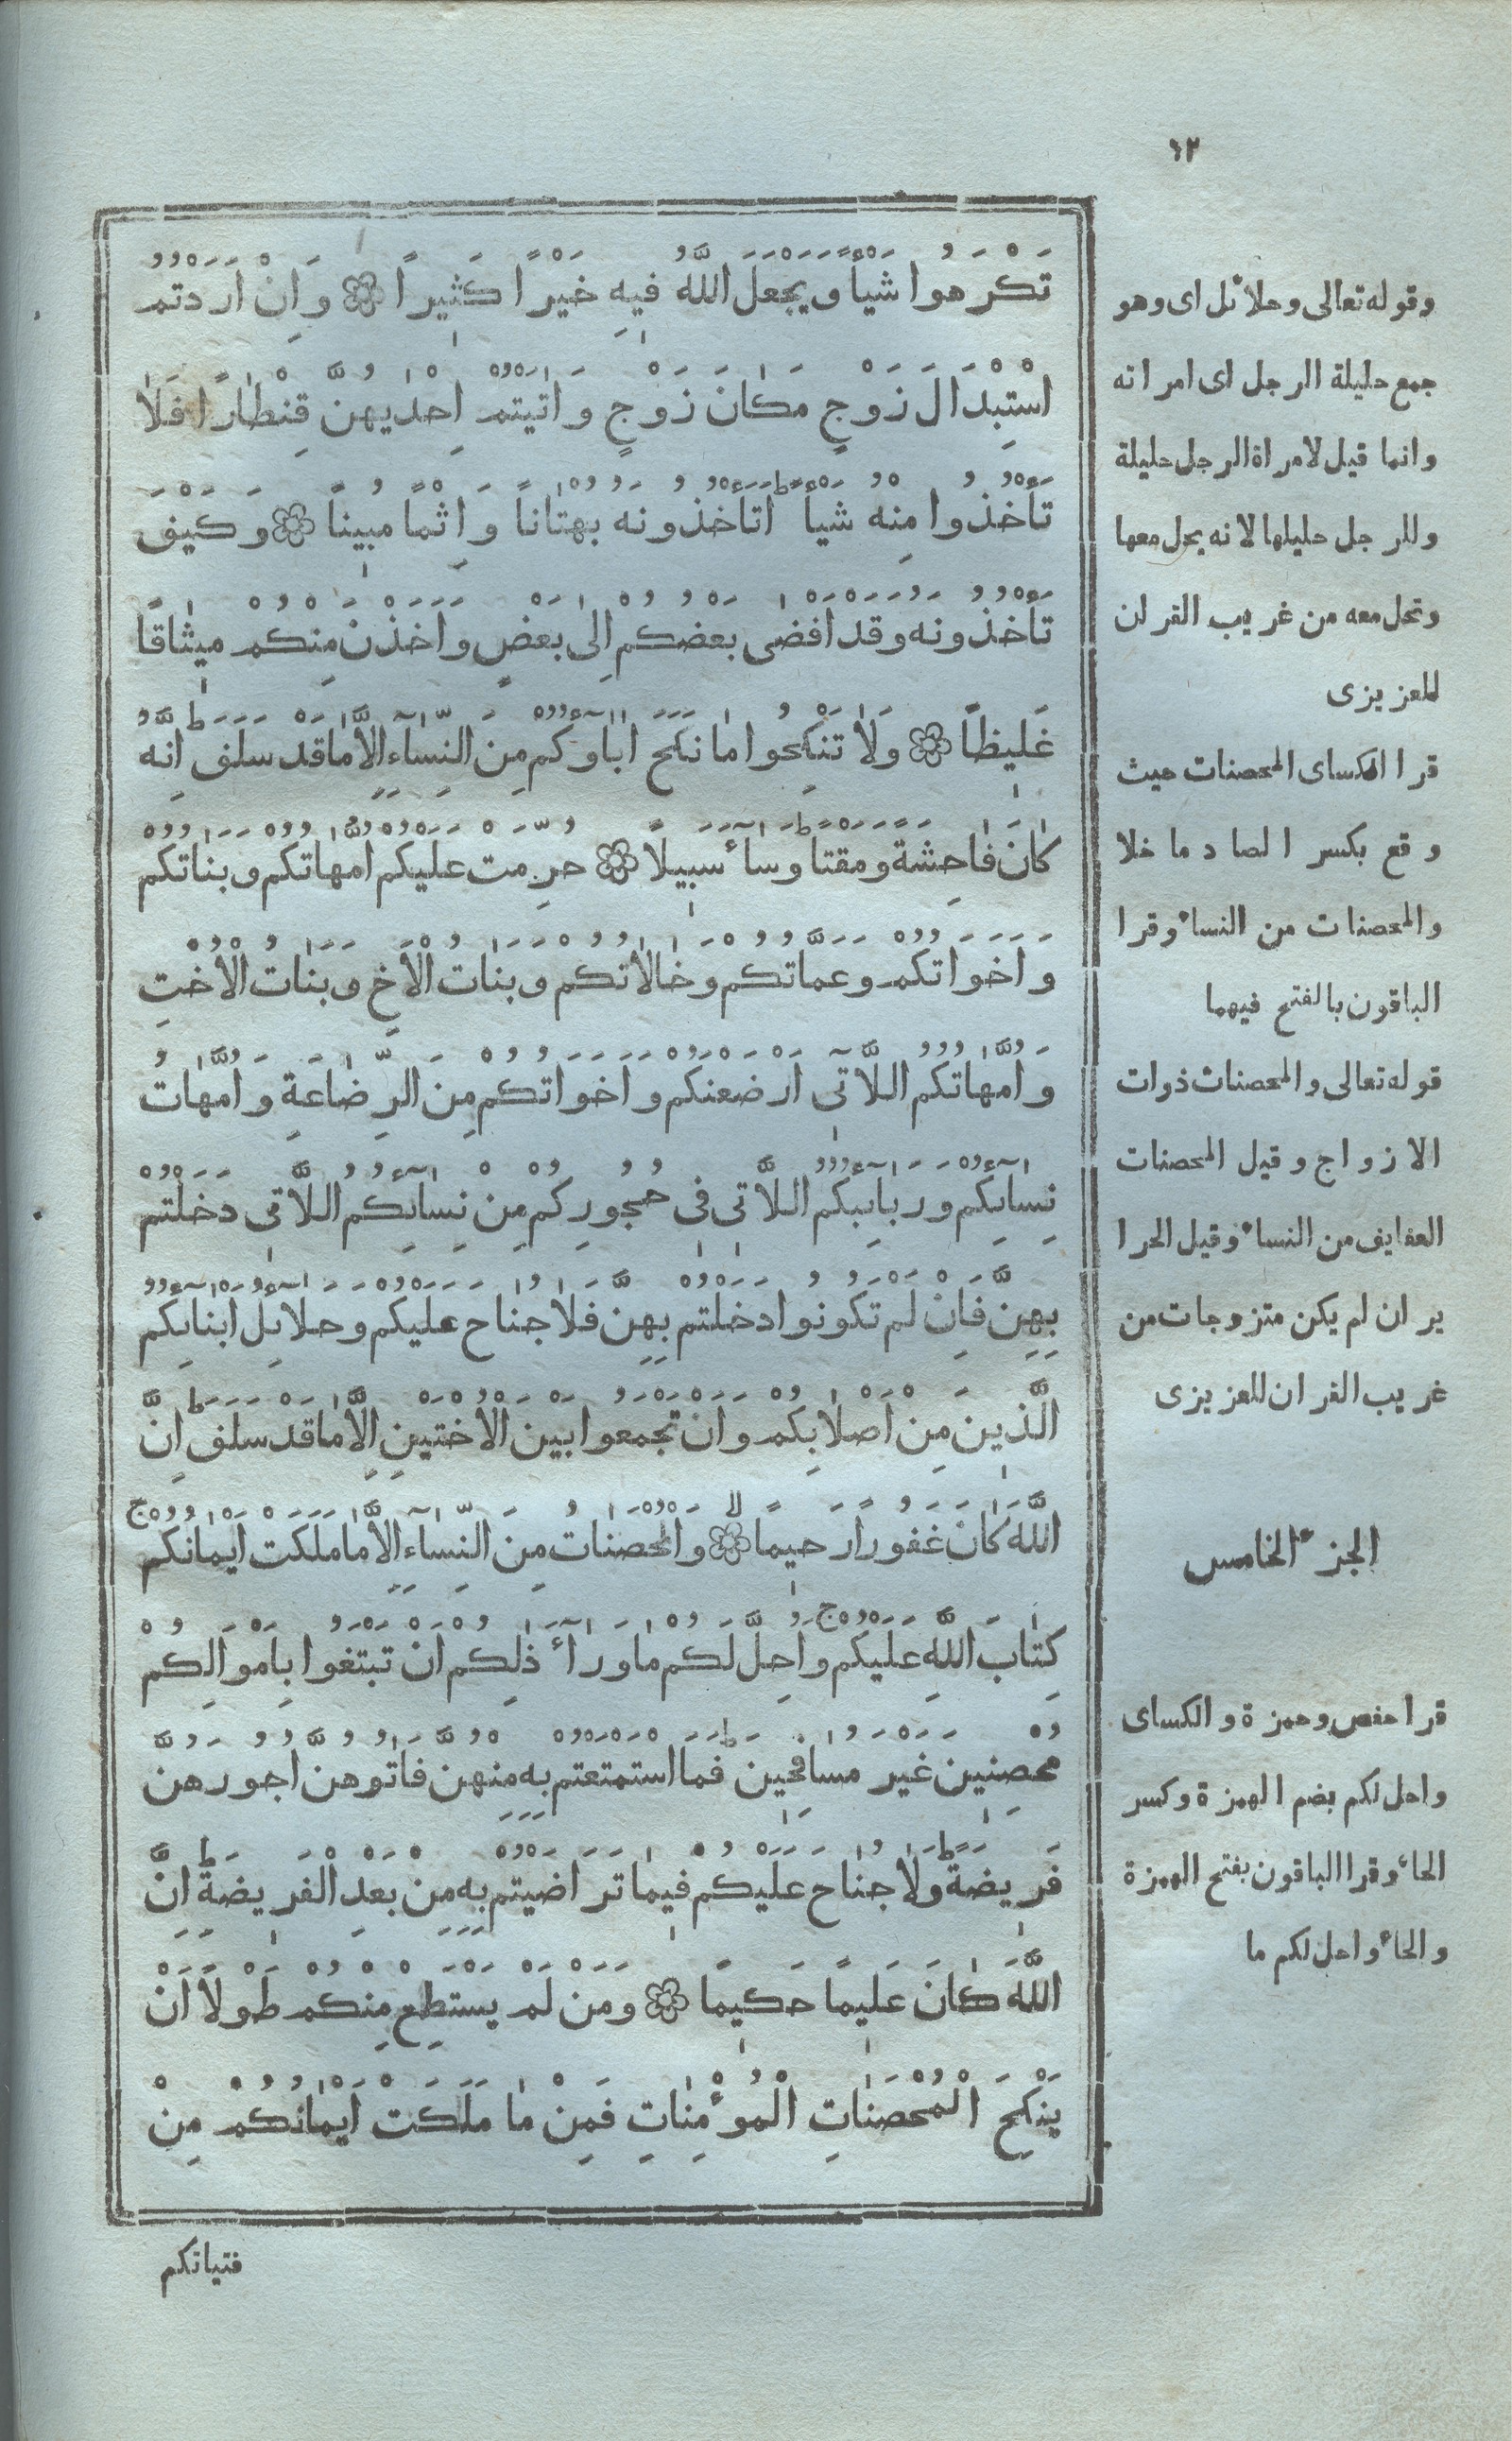 ٦٢
تَكْرَهُوا شَيْأً وَيَجْعَلَ اللَّهُ فِيهِ خَيْرًا كَثِيرًا ۝ وَاِنْ اَرَدْتُمُ
اسْتِبْدَالَ زَوْجٍ مَكَانَ زَوْجٍ وَاٰتَيْتُمْ اِحْدٰيهُنَّ قِنْطَارًا فَلَا
تَأْخُذُوا مِنْهُ شَيْأً اَتَأْخُذُونَهُ بُهْتَانًا وَاِثْمًا مُبِينًا ۝ وَكَيْفَ
تَأْخُذُونَهُ وَقَدْ اَفْضٰى بَعْضُكُمْ اِلٰى بَعْضٍ وَاَخَذْنَ مِنْكُمْ مِيثَاقًا
غَلِيظًا ۝ وَلَا تَنْكِحُوا مَا نَكَحَ اٰبَاؤُكُمْ مِنَ النِّسَآءِ اِلَّا مَا قَدْ سَلَفَ اِنَّهُ
كَانَ فَاحِشَةً وَمَقْتًا وَسَآءَ سَبِيلًا ۝ حُرِّمَتْ عَلَيْكُمْ اُمَّهَاتُكُمْ وَبَنَاتُكُمْ
وَاَخَوَاتُكُمْ وَعَمَّاتُكُمْ وَخَالَاتُكُمْ وَبَنَاتُ الْاَخِ وَبَنَاتُ الْاُخْتِ
وَاُمَّهَاتُكُمُ اللَّاتِى اَرْضَعْنَكُمْ وَاَخَوَاتُكُمْ مِنَ الرِّضَاعَةِ وَاُمَّهَاتُ
نِسَآئِكُمْ وَرَبَآئِبُكُمُ اللَّاتِى فِى حُجُورِكُمْ مِنْ نِسَآئِكُمُ اللَّاتِى دَخَلْتُمْ
بِهِنَّ فَاِنْ لَمْ تَكُونُوا دَخَلْتُمْ بِهِنَّ فَلَا جُنَاحَ عَلَيْكُمْ وَحَلَآئِلُ اَبْنَآئِكُمُ
الَّذِينَ مِنْ اَصْلَابِكُمْ وَاَنْ تَجْمَعُوا بَيْنَ الْاُخْتَيْنِ اِلَّا مَا قَدْ سَلَفَ اِنَّ
اللَّهَ كَانَ غَفُورًا رَحِيمًا ۝ وَالْمُحْصَنَاتُ مِنَ النِّسَآءِ اِلَّا مَا مَلَكَتْ اَيْمَانُكُمْ
كِتَابَ اللَّهِ عَلَيْكُمْ وَاُحِلَّ لَكُمْ مَا وَرَآءَ ذٰلِكُمْ اَنْ تَبْتَغُوا بِاَمْوَالِكُمْ
مُحْصِنِينَ غَيْرَ مُسَافِحِينَ فَمَا اسْتَمْتَعْتُمْ بِهِ مِنْهُنَّ فَاٰتُوهُنَّ اُجُورَهُنَّ
فَرِيضَةً وَلَا جُنَاحَ عَلَيْكُمْ فِيمَا تَرَاضَيْتُمْ بِهِ مِنْ بَعْدِ الْفَرِيضَةِ اِنَّ
اللَّهَ كَانَ عَلِيمًا حَكِيمًا ۝ وَمَنْ لَمْ يَسْتَطِعْ مِنْكُمْ طَوْلًا اَنْ
يَنْكِحَ الْمُحْصَنَاتِ الْمُؤْمِنَاتِ فَمِنْ مَا مَلَكَتْ اَيْمَانُكُمْ مِنْ
فتياتكم
وقوله تعالى وحلائل اى وهو
جمع حليلة الرجل اى امراته
وانما قيل لامراة الرجل حليلة
وللرجل حليلها لانه يحل معها
وتحل معه من غريب القران
للعزيزى
قرا الكساى المحصنات حيث
وقع بكسر الصاد ما خلا
والمحصنات من النساء وقرا
الباقون بالفتح فيهما
قوله تعالى والمحصنات ذوات
الازواج وقيل المحصنات
العفايف من النساء وقيل الحرا
ير ان لم يكن متزوجات من
غريب القران للعزيزى
الجزء الخامس
قرا حفص وحمزة والكساى
واحل لكم بضم الهمزة وكسر
الحاء وقرا الباقون بفتح الهمزة
والحاء واحل لكم ما